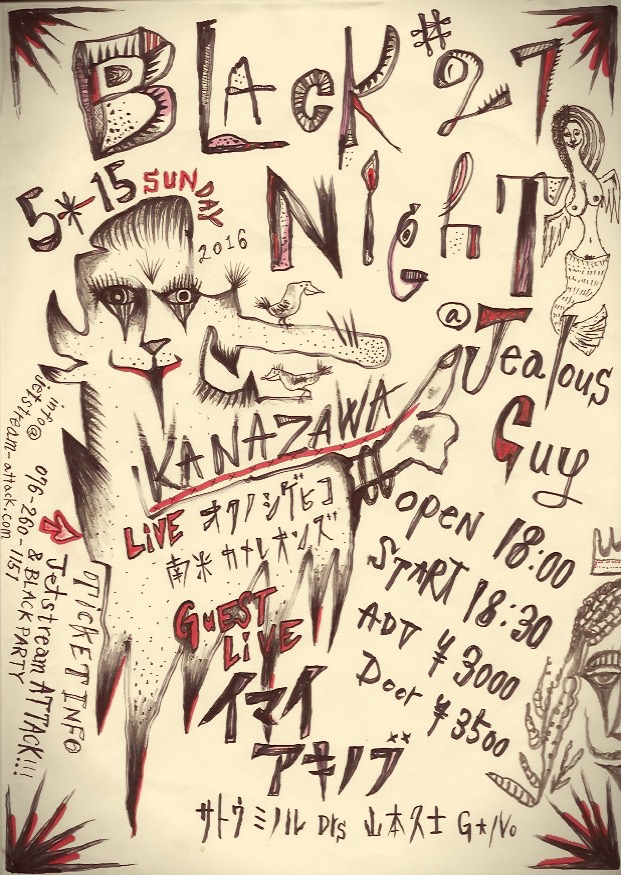 BLACK #27
NighT
5*15 SUNDAY
2016
@ Jealous
Guy
KANAZAWA
LIVE オクノシゲヒコ
南米カメレオンズ
GUEST
LiVE
イマイ
アキノブ
サトウミノル Drs 山本久士 G*/Vo
open 18:00
START 18:30
ADV ¥3000
Door ¥3500
TICKET INFO
Jetstream ATTACK!!!
& BLACK PARTY
076-260-1151
info@
jetstream-attack.com